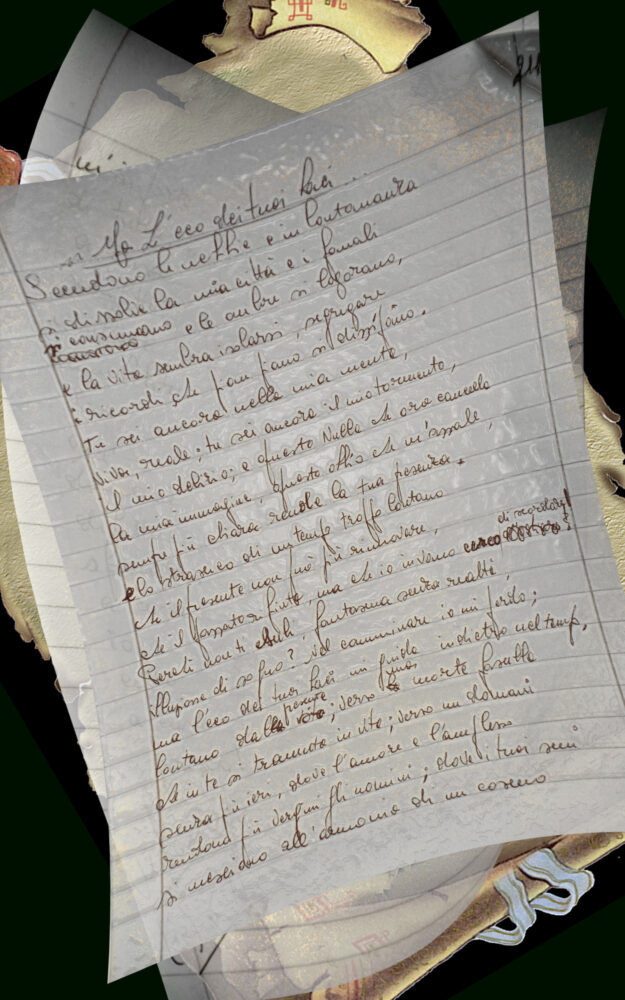 ... Ma L'eco dei tuoi baci ...
Scendono le nebbie e in lontananza
si dissolve la mia città e i fanali
si consumano e le ombre si logorano,
e la vita sembra isolarsi, segregare
i ricordi che pian piano si dissipano.
Tu sei ancora nella mia mente,
viva, reale; tu sei ancora il mio tormento,
il mio delirio; e questo Nulla che ora cancella
la mia immagine, questo oblio che m'assale,
sempre più chiara rende la tua presenza.
e lo strascico di un tempo troppo lontano
che il presente non può più rinnovare,
che il passato ha finito, ma che io invano cerco di scordare!
Perché non ti esuli, fantasma senza realtà,
illusione di sogno? Nel camminare io mi perdo;
ma l'eco dei tuoi baci mi guida indietro nel tempo,
lontano dal presente; verso quella morte
che in te si tramuta in vita; verso un domani
senza più ieri, dove l'amore e l'amplesso
rendono più vergini gli uomini; dove i tuoi seni
si mescolano all'armonia di un cosmo